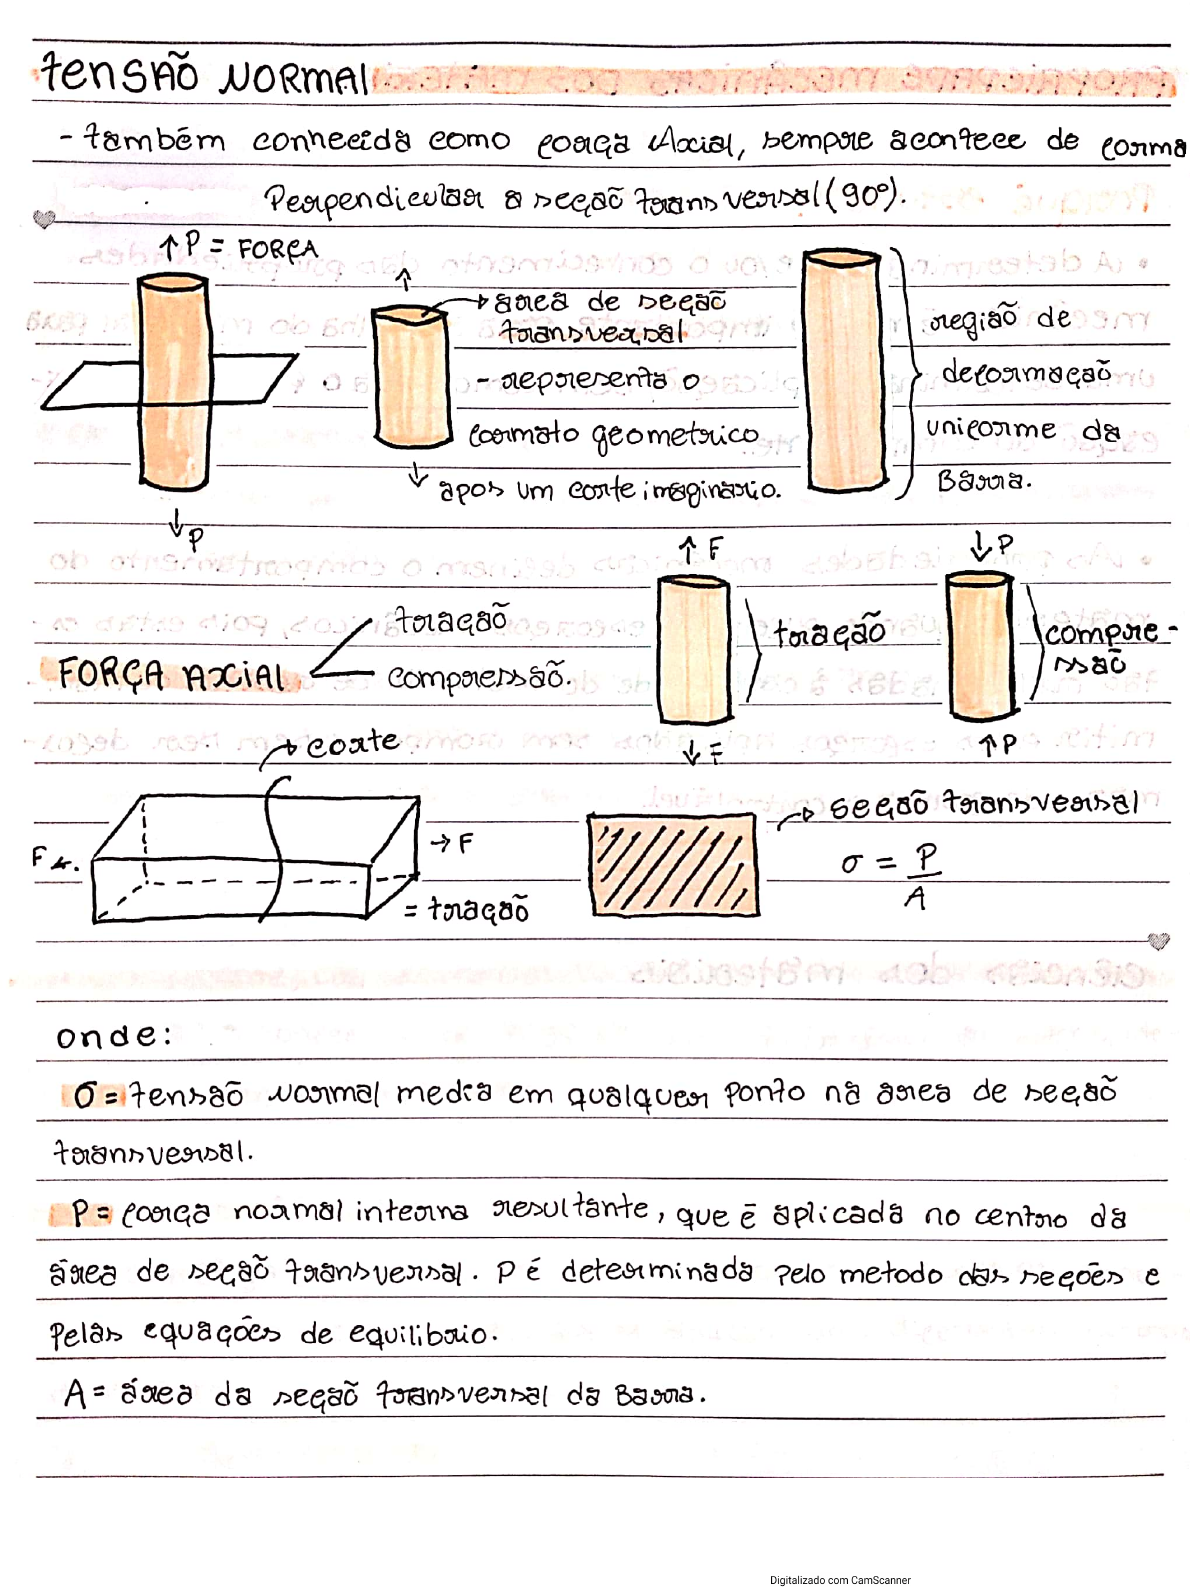 tensão normal
- também conhecida como força Axial, sempre acontece de forma
Perpendicular a seção transversal (90º).
↑ P = FORÇA
↑
área de seção
transversal
- representa o
formato geometrico
apos um corte imaginário.
↓
↓ P
região de
deformação
uniforme da
Barra.
FORÇA AXIAL
tração
compressão.
↑ F
tração
↓ F
↓ P
compre-
ssão
↑ P
corte
F ←.
→ F
= tração
seção transversal
σ = P/A
onde:
σ = tensão normal media em qualquer ponto na area de seção
transversal.
P = força normal interna resultante, que é aplicada no centro da
área de seção transversal. P é determinada pelo metodo das seções e
pelas equações de equilibrio.
A = área da seção transversal da Barra.
Digitalizado com CamScanner